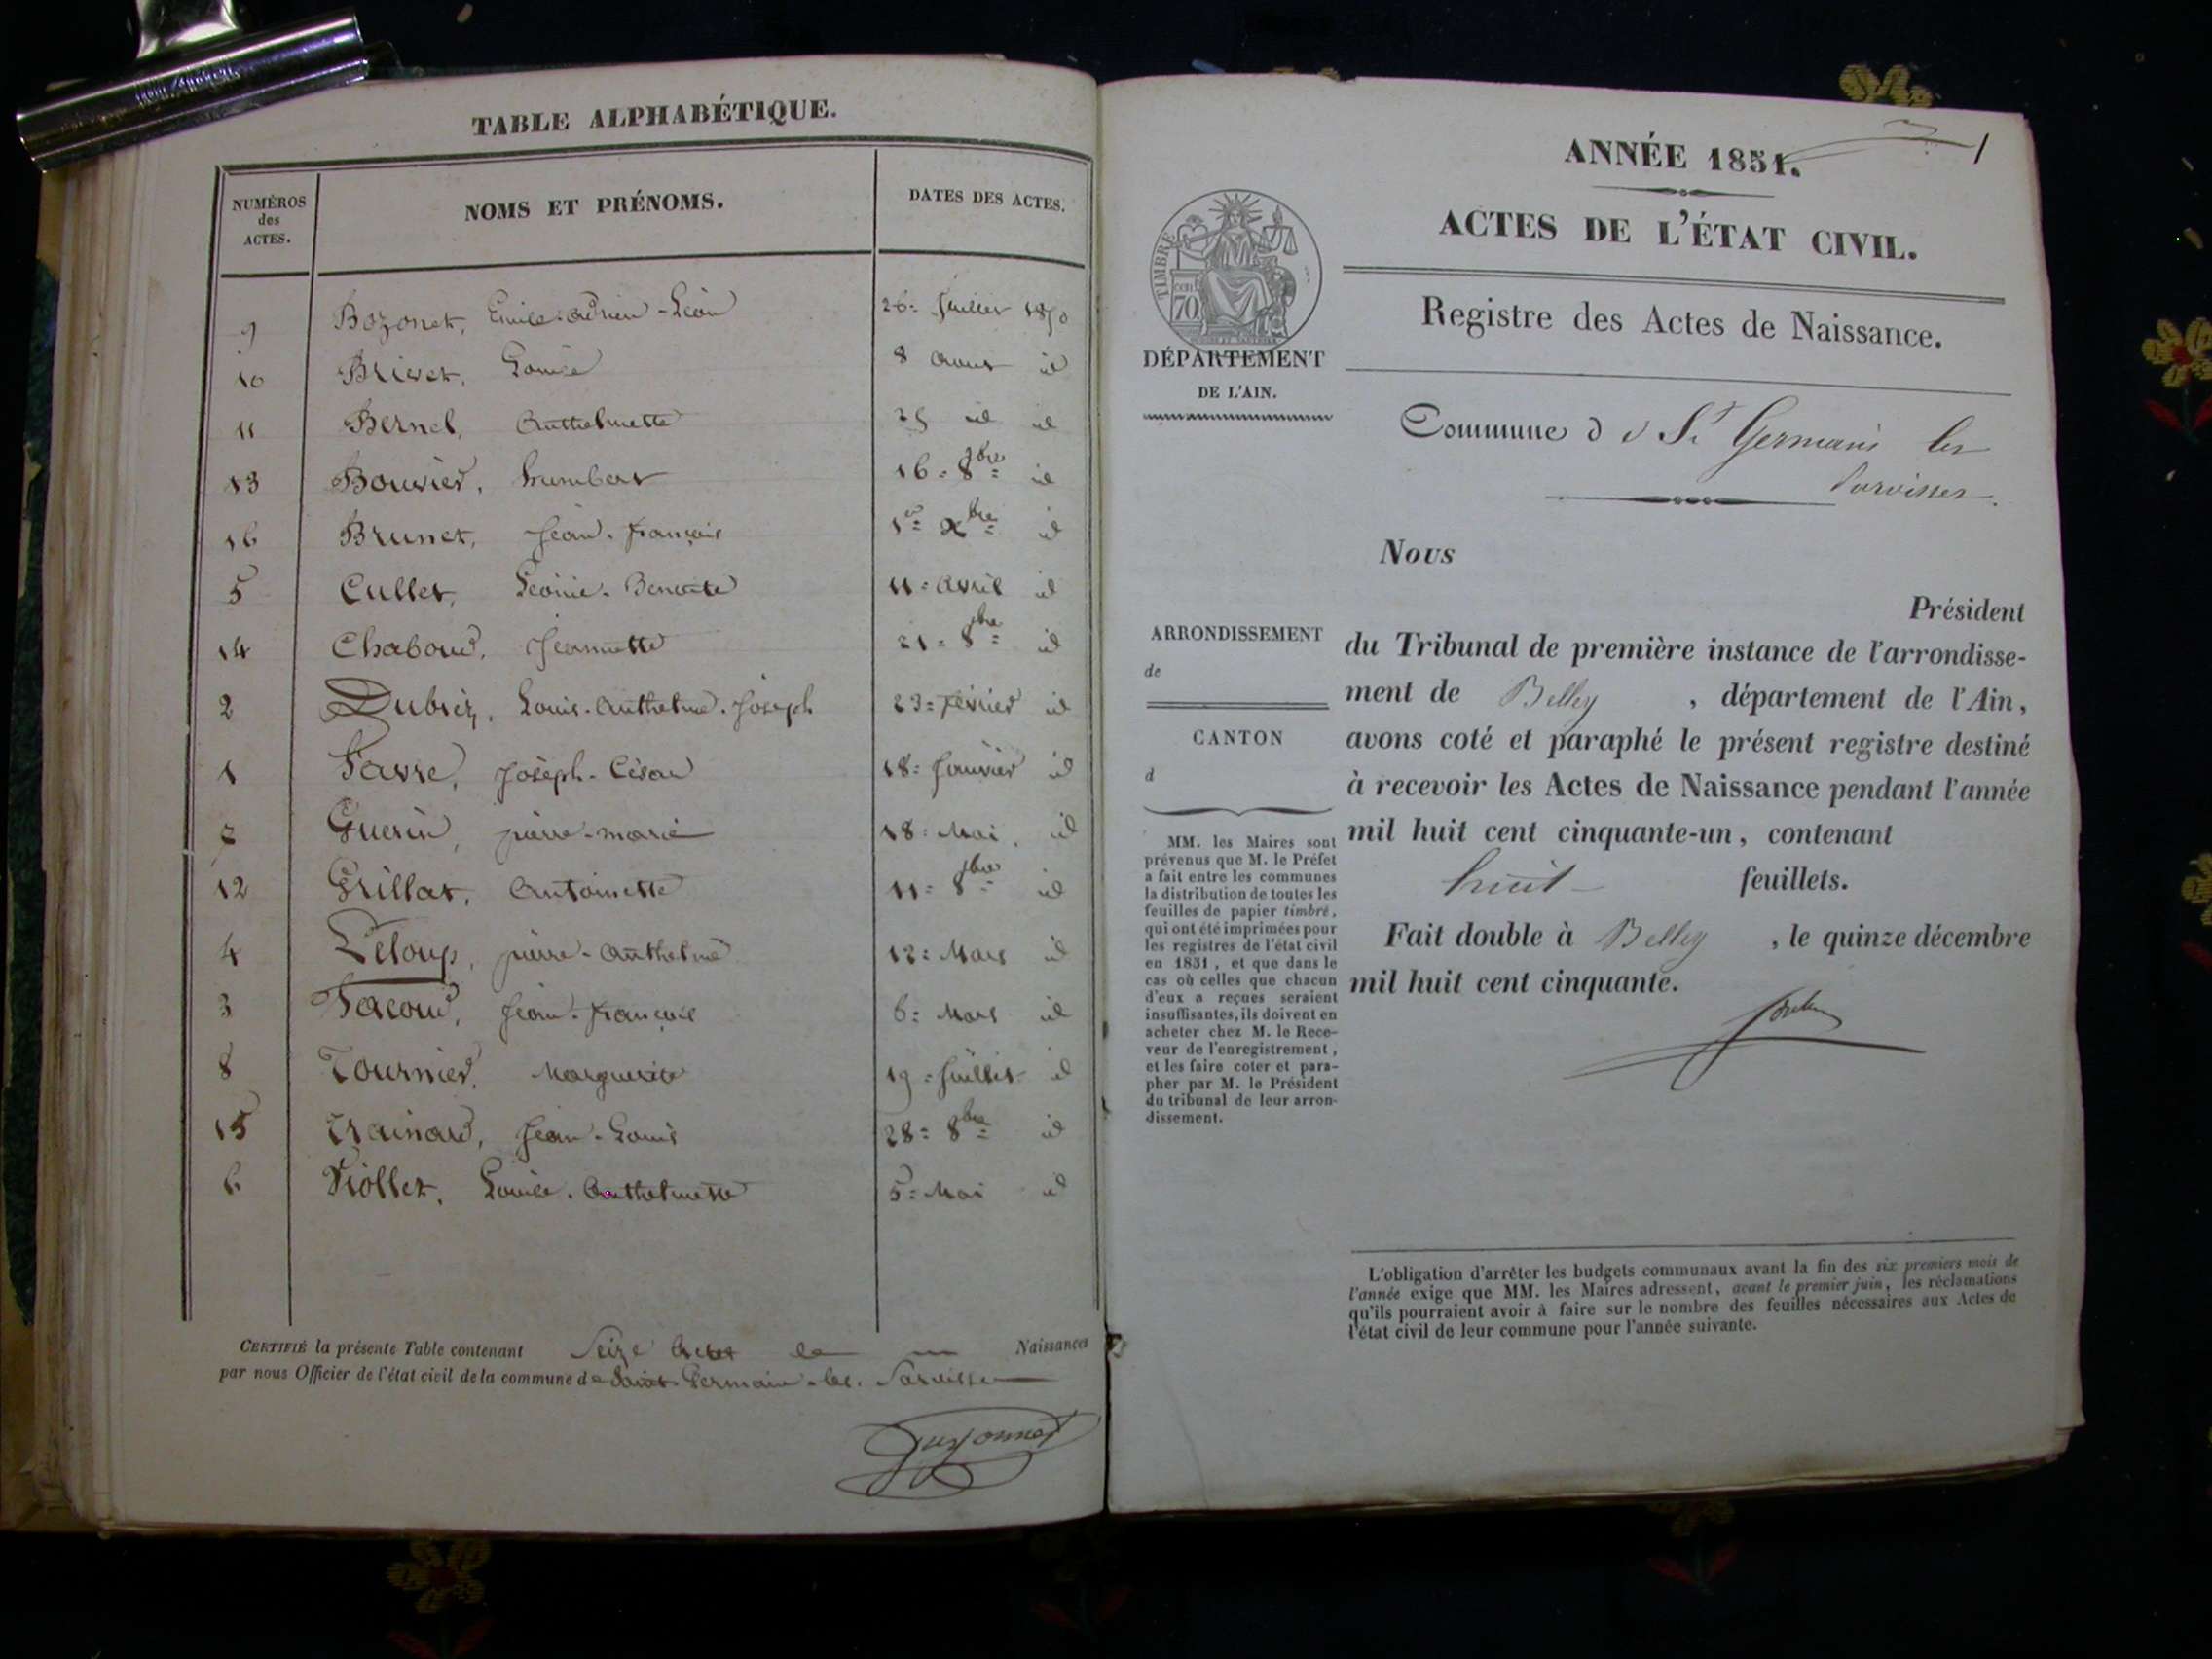 TABLE ALPHABÉTIQUE.
NUMÉROS des ACTES. NOMS ET PRÉNOMS. DATES DES ACTES.
9 Bozonet, Emile-Adrien-Léon 26: Juillet 1850
10 Brivet, Louise 8 Aout id
11 Bernel, Anthelmette 25 id id
13 Bouvier, humbert 16: 8bre id
16 Brunet, Jean-françois 1er Xbre id
5 Cullet, Léonie-Benoite 11: Avril id
14 Chaboud, Jeannette 21: 8bre id
2 Dubiez, Louis-Anthelme-Joseph 23: février id
1 Favre, Joseph-César 18: Janvier id
7 Guerin, pierre-marie 18: Mai id
12 Grillat, Antoinette 11: 8bre id
4 Leloup, pierre-Anthelme 12: Mars id
3 Tacoud, Jean-françois 6: Mars id
8 Tournier, Marguerite 19: Juillet id
15 Trainard, Jean-Louis 28: 8bre id
6 Viollet, Louise-Anthelmette 5: Mai id
CERTIFIÉ la présente Table contenant Seize Actes de Naissances
par nous Officier de l'état civil de la commune de Saint-Germain-les-Paroisses
ANNÉE 1851.
1
ACTES DE L'ÉTAT CIVIL.
TIMBRE
70
Registre des Actes de Naissance.
DÉPARTEMENT
DE L'AIN.
Commune d e St Germain les
Paroisses.
Nous
Président
ARRONDISSEMENT
de
CANTON
d
du Tribunal de première instance de l'arrondisse-
ment de Belley, département de l'Ain,
avons coté et paraphé le présent registre destiné
à recevoir les Actes de Naissance pendant l'année
mil huit cent cinquante-un, contenant
huit feuillets.
Fait double à Belley, le quinze décembre
mil huit cent cinquante.
MM. les Maires sont
prévenus que M. le Préfet
a fait entre les communes
la distribution de toutes les
feuilles de papier timbré,
qui ont été imprimées pour
les registres de l'état civil
en 1851, et que dans le
cas où celles que chacun
d'eux a reçues seraient
insuffisantes, ils doivent en
acheter chez M. le Rece-
veur de l'enregistrement,
et les faire coter et para-
pher par M. le Président
du tribunal de leur arron-
dissement.
L'obligation d'arrêter les budgets communaux avant la fin des six premiers mois de
l'année exige que MM. les Maires adressent, avant le premier juin, les réclamations
qu'ils pourraient avoir à faire sur le nombre des feuilles nécessaires aux Actes de
l'état civil de leur commune pour l'année suivante.